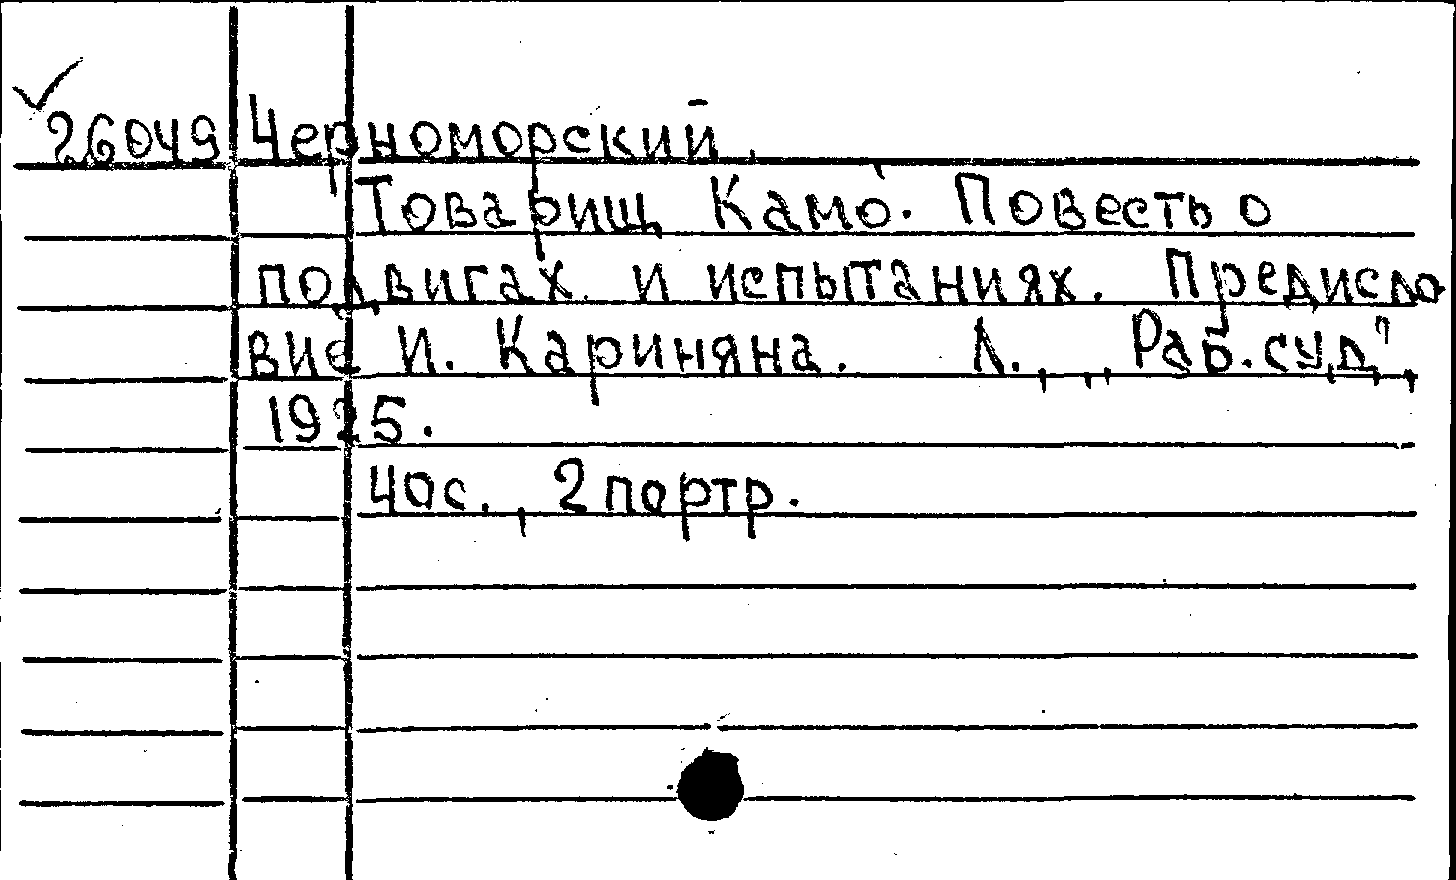 26049 Черноморский.
Товарищ Камо. Повесть о
подвигах и испытаниях. Предисло
вие И. Кариняна. Л., „Раб. суд”,
1925.
40с., 2 портр.